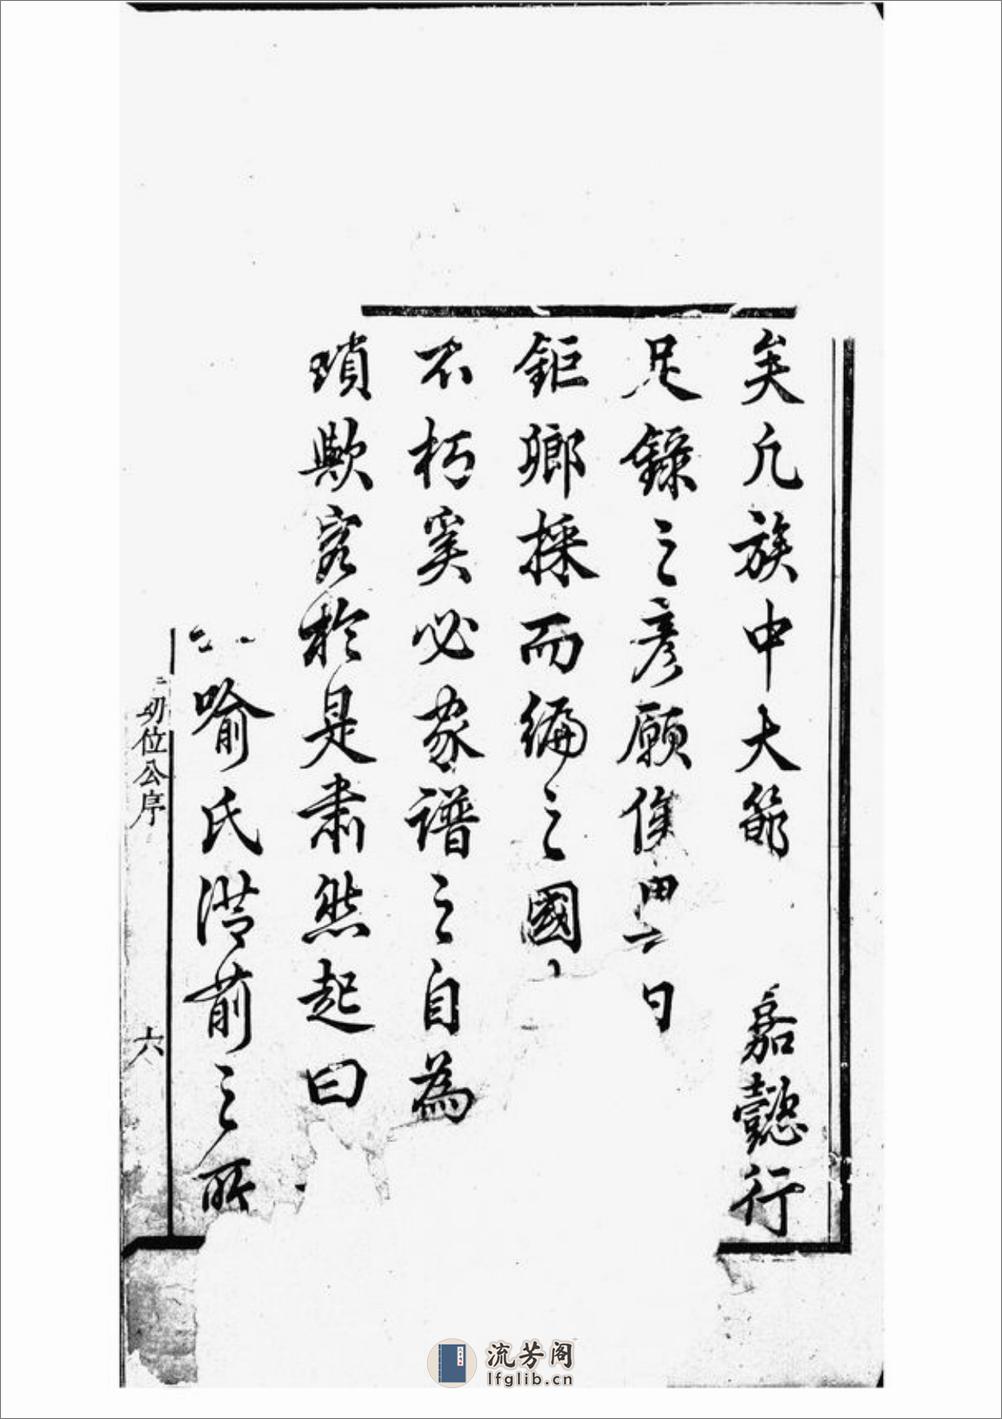 矣凡族中大節 嘉懿行
足錄之彥願俟 日
鉅鄉採而編之國
不朽奚必家譜之自為
瑣歟客於是肅然起曰
喻氏澘前之所
初位公序
六
流芳阁
lfglib.cn